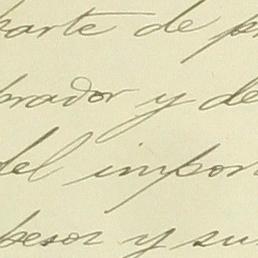 parte de p
prador y de
del impor
pesos y su